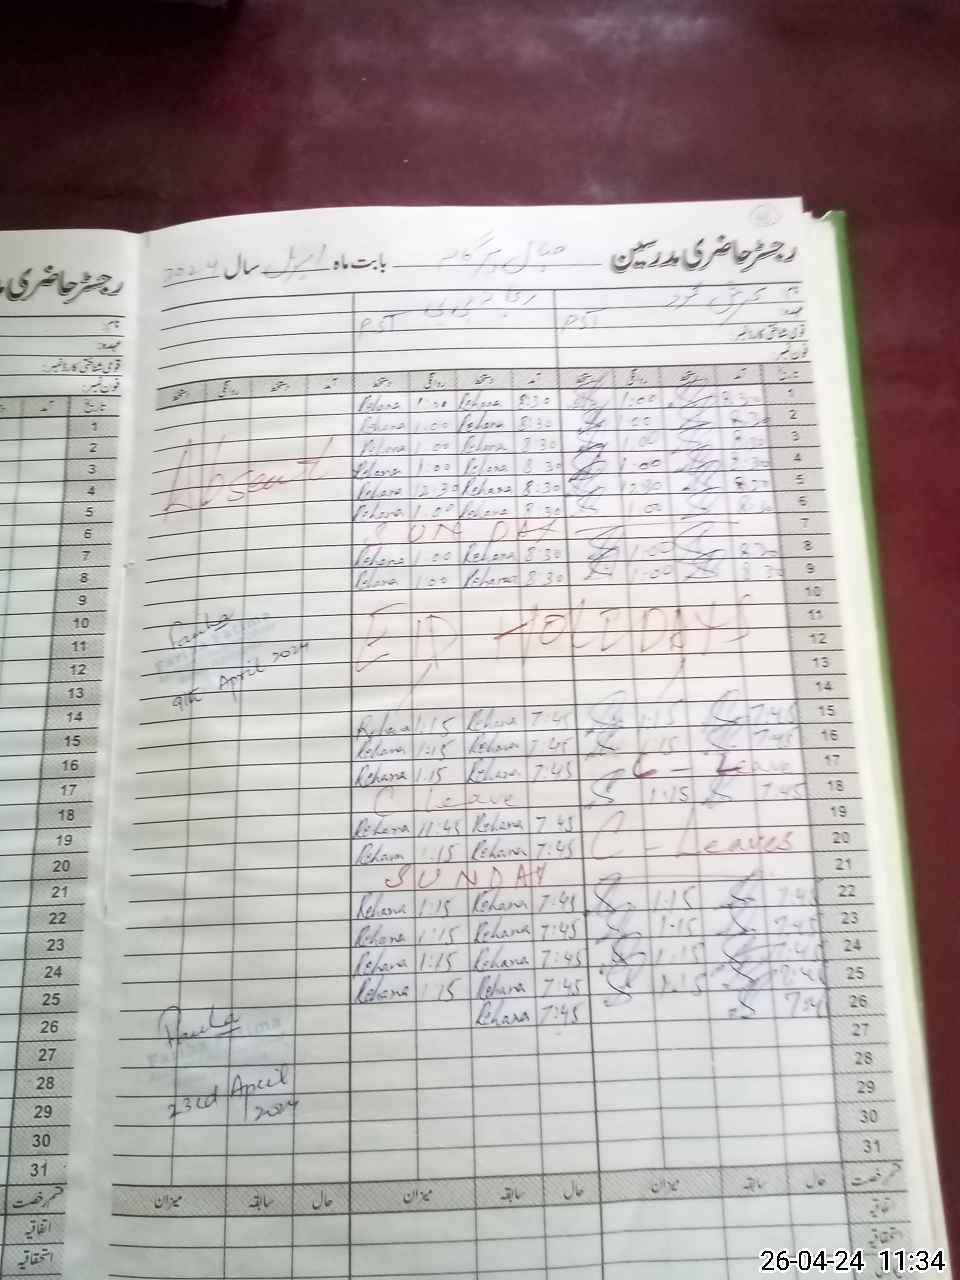 رجسٹر حاضری مدرسین
بابت ماہ اپریل سال 2024
نام:
عہدہ:
قومی شناختی کارڈ نمبر:
فون نمبر:
PST PST
تاریخ آمد دستخط روانگی دستخط آمد دستخط روانگی دستخط آمد دستخط روانگی دستخط
1 Rehana 1:00 Rehana 8:30 1:00 8:30
2 Rehana 1:00 Rehana 8:30 1:00 8:30
3 Rehana 1:00 Rehana 8:30 1:00 8:30
4 Rehana 1:00 Rehana 8:30 1:00 8:30
5 Rehana 12:30 Rehana 8:30 12:30 8:30
6 Rehana 1:00 Rehana 8:30 1:00 8:30
Absent
7 SUNDAY
8 Rehana 1:00 Rehana 8:30 1:00 8:30
9 Rehana 1:00 Rehana 8:30 1:00 8:30
10
11 EID HOLIDAYS
12
9th April 2024
13
14
15 Rehana 1:15 Rehana 7:45 1:15 7:45
16 Rehana 1:15 Rehana 7:45 1:15 7:45
17 Rehana 1:15 Rehana 7:45 C - Leave
18 C Leave 1:15 7:45
19 Rehana 11:45 Rehana 7:45
20 Rehana 1:15 Rehana 7:45 C - Leaves
21 SUNDAY
22 Rehana 1:15 Rehana 7:45 1:15 7:45
23 Rehana 1:15 Rehana 7:45 1:15 7:45
24 Rehana 1:15 Rehana 7:45 1:15 7:45
25 Rehana 1:15 Rehana 7:45 1:15 7:45
26 Rehana 7:45
27
28
23rd April
2024
29
30
31
قسم رخصت حال سابقہ میزان حال سابقہ میزان حال سابقہ میزان
اتفاقیہ
استحقاقیہ
رجسٹر حاضری
نام:
عہدہ:
قومی شناختی کارڈ نمبر:
فون نمبر:
تاریخ آمد
1
2
3
4
5
6
7
8
9
10
11
12
13
14
15
16
17
18
19
20
21
22
23
24
25
26
27
28
29
30
31
قسم رخصت
اتفاقیہ
استحقاقیہ
26-04-24 11:34